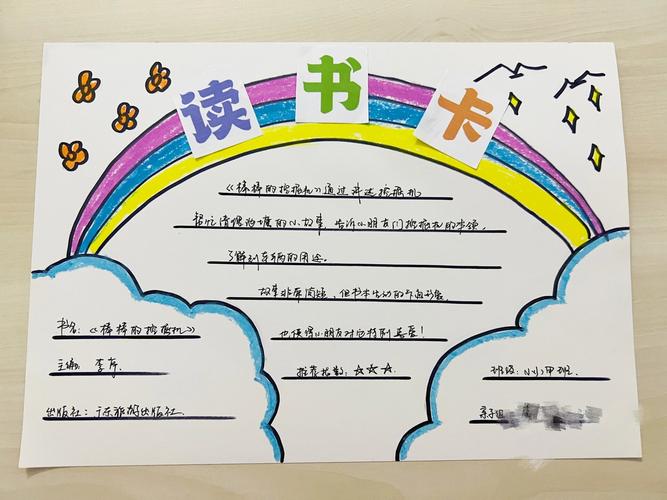 读书卡
《棒棒的挖掘机》通过讲述挖掘机
帮忙清理的小故事,告诉小朋友们挖掘机的本领,
了解到车辆的用途。
故事非常简短,但书本生动的
也使得小朋友对它特别喜爱!
推荐指数:☆☆☆
书名:《棒棒的挖掘机》
主编:李
出版社:广东出版社.
班级:小小甲班.
亲子组